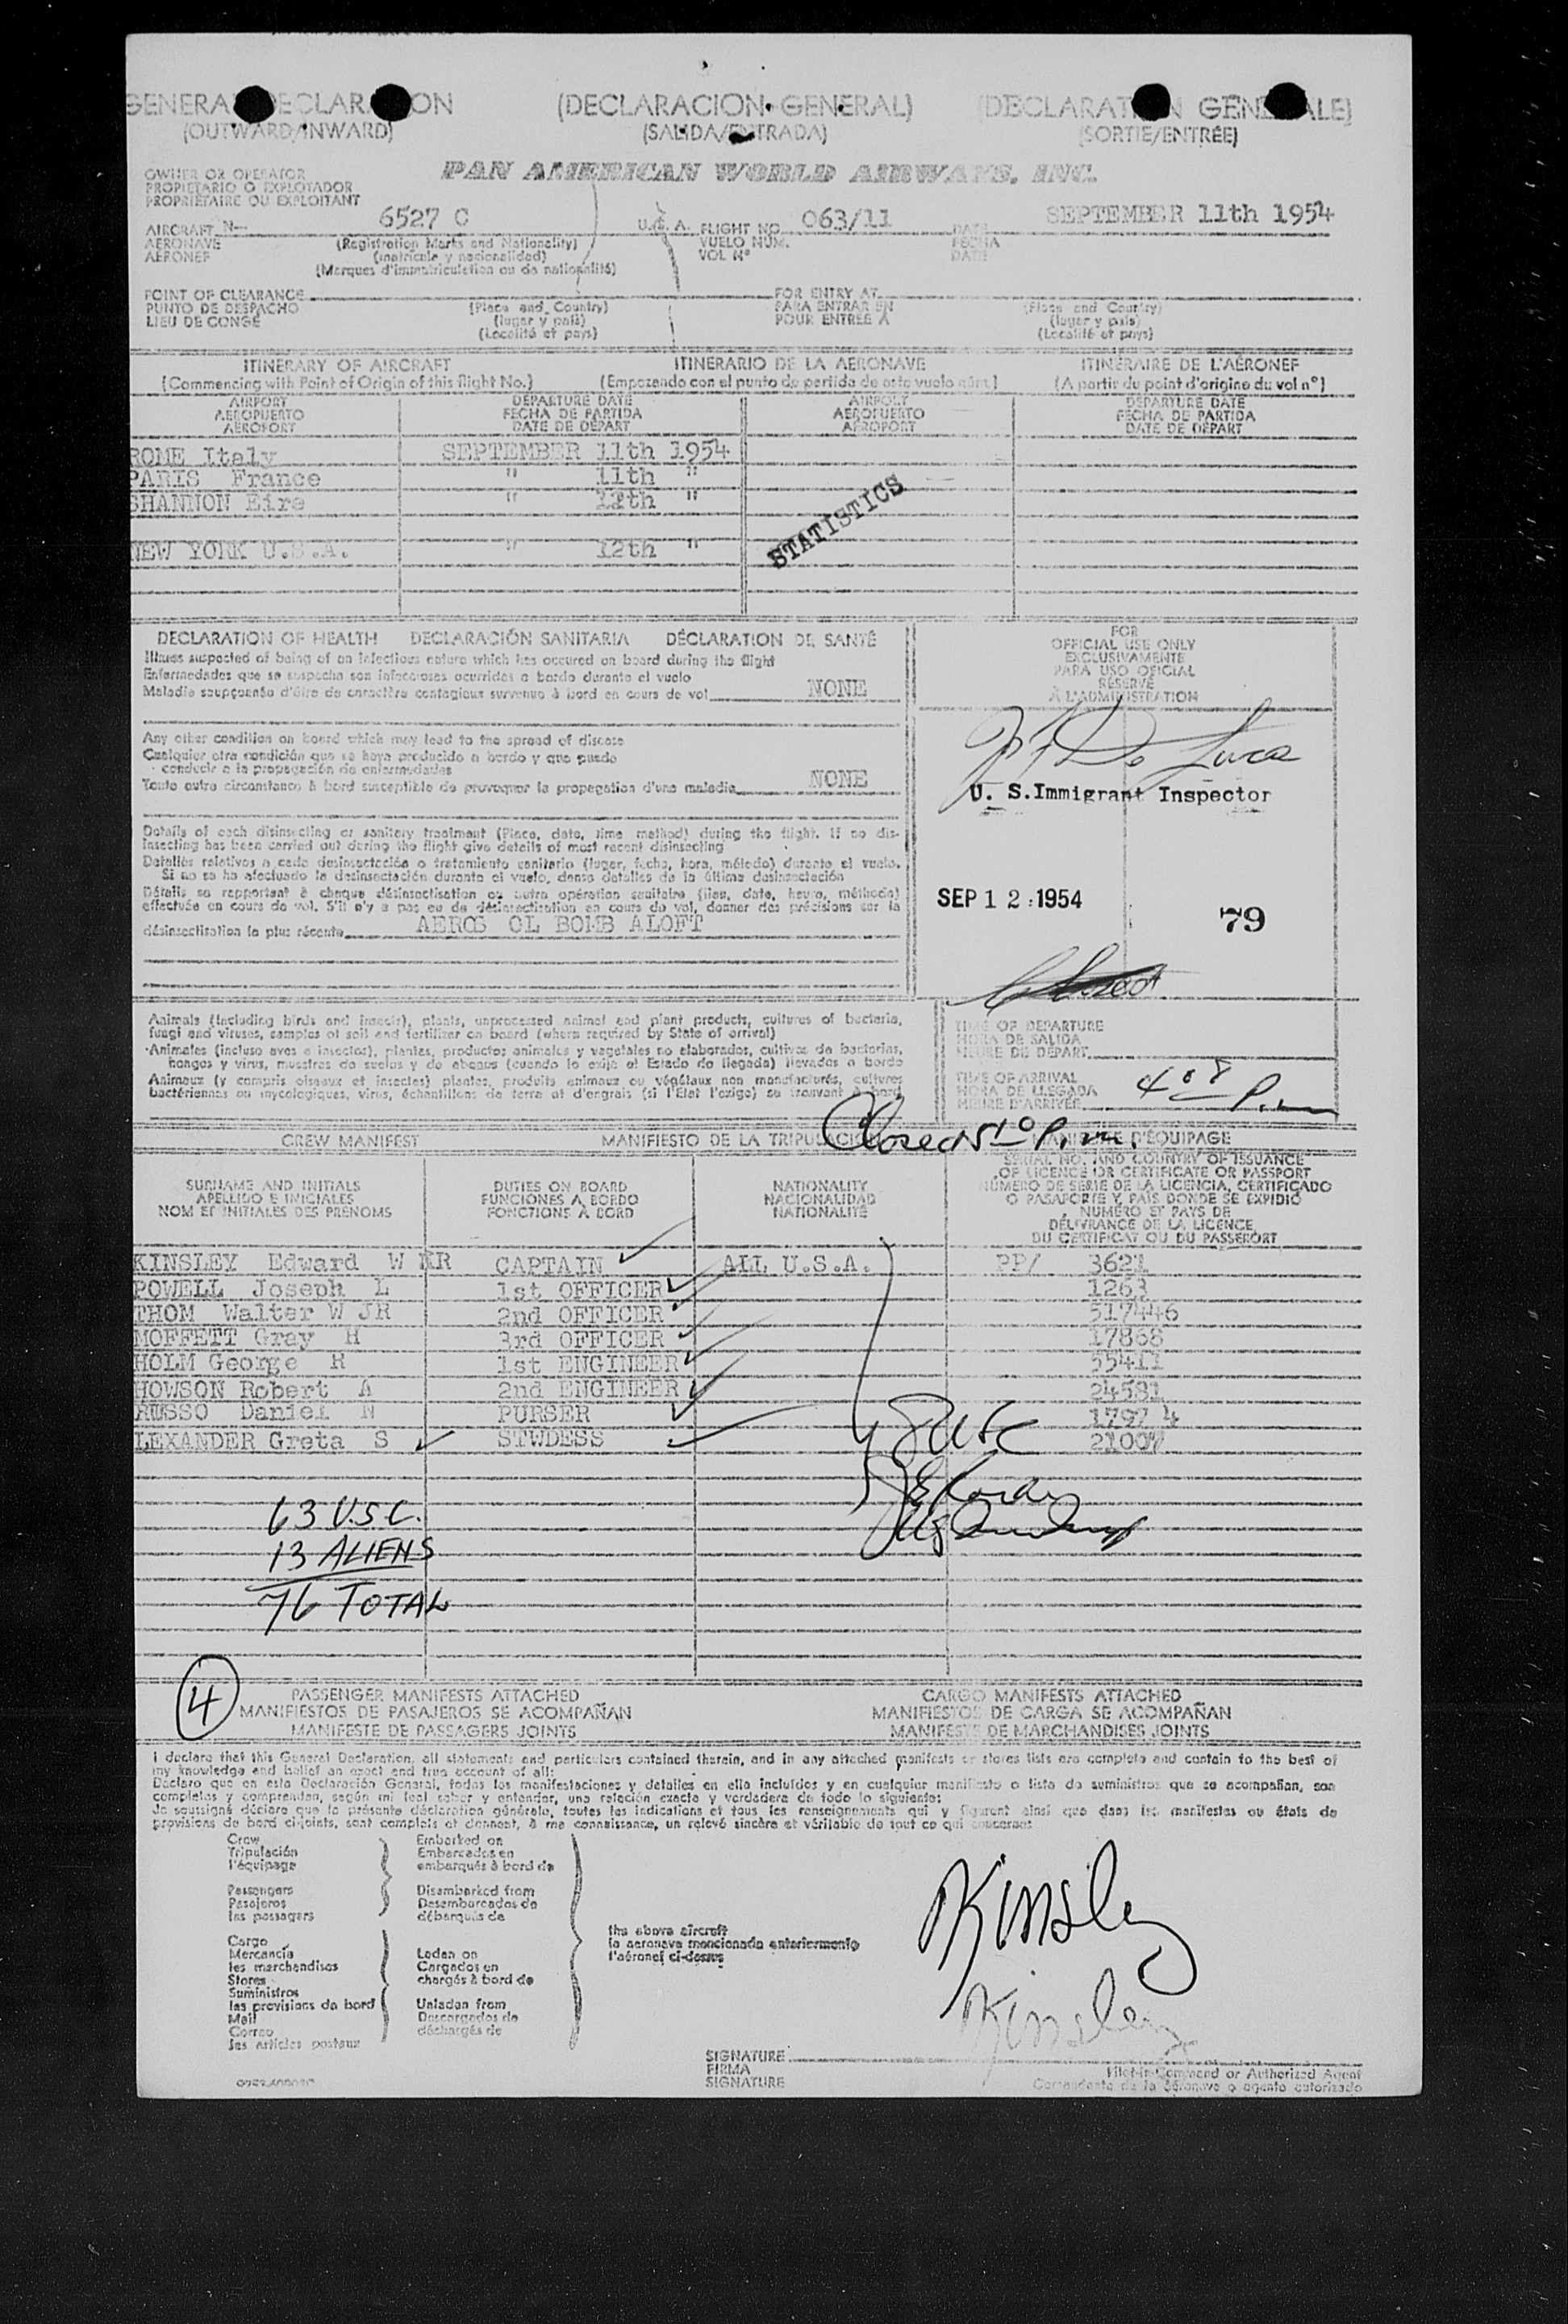 GENERAL DECLARATION (DECLARACION GENERAL) (DECLARATION GÉNÉRALE)
(OUTWARD/INWARD) (SALIDA/ENTRADA) (SORTIE/ENTRÉE)
OWNER OR OPERATOR
PROPIETARIO O EXPLOTADOR
PROPRIÉTAIRE OU EXPLOITANT
PAN AMERICAN WORLD AIRWAYS, INC.
AIRCRAFT N— 6527 C U.S.A. FLIGHT NO. 063/11 DATE SEPTEMBER 11th 1954
AERONAVE (Registration Marks and Nationality) VUELO NÚM. FECHA
AÉRONEF (matrícula y nacionalidad) VOL Nº DATE
(Marques d'immatriculation ou de nationalité)
POINT OF CLEARANCE FOR ENTRY AT
PUNTO DE DESPACHO (Place and Country) PARA ENTRAR EN (Place and Country)
LIEU DE CONGÉ (lugar y país) POUR ENTRÉE À (lugar y país)
(Localité et pays) (Localité et pays)
ITINERARY OF AIRCRAFT ITINERARIO DE LA AERONAVE ITINÉRAIRE DE L'AÉRONEF
(Commencing with Point of Origin of this flight No.) (Empezando con el punto de partida de este vuelo núm.) (A partir du point d'origine du vol nº)
AIRPORT DEPARTURE DATE AIRPORT DEPARTURE DATE
AEROPUERTO FECHA DE PARTIDA AEROPUERTO FECHA DE PARTIDA
AÉROPORT DATE DE DÉPART AÉROPORT DATE DE DÉPART
ROME Italy SEPTEMBER 11th 1954
PARIS France " 11th "
SHANNON Eire " 12th "
STATISTICS
NEW YORK U.S.A. " 12th "
DECLARATION OF HEALTH DECLARACIÓN SANITARIA DÉCLARATION DE SANTÉ
Illness suspected of being of an infectious nature which has occured on board during the flight
Enfermedades que se sospecha son infecciosas ocurridas a bordo durante el vuelo
Maladie soupçonnée d'être de caractère contagieux survenue à bord en cours de vol NONE
Any other condition on board which may lead to the spread of disease
Cualquier otra condición que se haya producido a bordo y que pueda
conducir a la propagación de enfermedades
Toute autre circonstance à bord susceptible de provoquer la propagation d'une maladie NONE
Details of each disinsecting or sanitary treatment (Place, date, time method) during the flight. If no dis-
insecting has been carried out during the flight give details of most recent disinsecting
Detalles relativos a cada desinsectación o tratamiento sanitario (lugar, fecha, hora, método) durante el vuelo.
Si no se ha efectuado la desinsectación durante el vuelo, dense detalles de la última desinsectación
Détails se rapportant à chaque désinsectisation ou autre opération sanitaire (lieu, date, heure, méthode)
effectuée en cours de vol. S'il n'y a pas eu de désinsectisation en cours de vol, donner des précisions sur la
désinsectisation la plus récente AEROS OL BOMB ALOFT
FOR
OFFICIAL USE ONLY
EXCLUSIVAMENTE
PARA USO OFICIAL
RÉSERVÉ
À L'ADMINISTRATION
De Luca
U. S. Immigrant Inspector
SEP 12 1954
79
Closed
Animals (including birds and insects), plants, unprocessed animal and plant products, cultures of bacteria,
fungi and viruses, samples of soil and fertilizer on board (where required by State of arrival)
Animales (incluso aves e insectos), plantas, productos animales y vegetales no elaborados, cultivos de bacterias,
hongos y virus, muestras de suelos y de abonos (cuando lo exija el Estado de llegada) llevados a bordo
Animaux (y compris oiseaux et insectes) plantes, produits animaux ou végétaux non manufacturés, cultures
bactériennes ou mycologiques, virus, échantillons de terre et d'engrais (si l'État l'exige) se trouvant à bord
TIME OF DEPARTURE
HORA DE SALIDA
HEURE DE DÉPART
TIME OF ARRIVAL
HORA DE LLEGADA
HEURE D'ARRIVÉE 4 08 P.m
Closed 5 10 P.m.
CREW MANIFEST MANIFIESTO DE LA TRIPULACIÓN MANIFESTE D'ÉQUIPAGE
SURNAME AND INITIALS
APELLIDO E INICIALES
NOM ET INITIALES DES PRENOMS
DUTIES ON BOARD
FUNCIONES A BORDO
FONCTIONS À BORD
NATIONALITY
NACIONALIDAD
NATIONALITÉ
SERIAL NO. AND COUNTRY OF ISSUANCE
OF LICENCE OR CERTIFICATE OR PASSPORT
NÚMERO DE SERIE DE LA LICENCIA, CERTIFICADO
O PASAPORTE Y PAÍS DONDE SE EXPIDIÓ
NUMÉRO ET PAYS DE
DÉLIVRANCE DE LA LICENCE
DU CERTIFICAT OU DU PASSEPORT
KINSLEY Edward W CAPTAIN ALL U.S.A. PP/ 3621
POWELL Joseph L 1st OFFICER 1263
THOM Walter W JR 2nd OFFICER 517446
MOFFETT Gray H 3rd OFFICER 17868
HOLM George R 1st ENGINEER 55411
HOWSON Robert A 2nd ENGINEER 24581
RUSSO Daniel N PURSER 1797 4
LEXANDER Greta S STWDESS 21007
8 USC
63 U.S.C.
13 ALIENS
76 TOTAL
4
PASSENGER MANIFESTS ATTACHED CARGO MANIFESTS ATTACHED
MANIFIESTOS DE PASAJEROS SE ACOMPAÑAN MANIFIESTOS DE CARGA SE ACOMPAÑAN
MANIFESTE DE PASSAGERS JOINTS MANIFESTE DE MARCHANDISES JOINTS
I declare that this General Declaration, all statements and particulars contained therein, and in any attached manifests or stores lists are complete and contain to the best of
my knowledge and belief an exact and true account of all:
Declaro que en esta Declaración General, todas las manifestaciones y detalles en ella incluídos y en cualquier manifiesto o lista de suministros que se acompañan, son
completas y comprenden, según mi leal saber y entender, una relación exacta y verdadera de todo lo siguiente:
Je soussigné déclare que la présente déclaration générale, toutes les indications et tous les renseignements qui y figurent ainsi que dans les manifestes ou états de
provisions de bord ci-joints, sont complets et donnent, à ma connaissance, un relevé sincère et véritable de tout ce qui concerne:
Crew Embarked on
Tripulación Embarcados en
l'équipage embarqués à bord de
Passengers Disembarked from
Pasajeros Desembarcados de
les passagers débarqués de
Cargo
Mercancía Laden on
les marchandises Cargados en
Stores chargés à bord de
Suministros
les provisions de bord Unladen from
Mail Descargados de
Correo déchargés de
les articles postaux
the above aircraft
la aeronave mencionada anteriormente
l'aéronef ci-dessus
Kinsley
Kinsley
SIGNATURE
FIRMA
SIGNATURE
Pilot-in-Command or Authorized Agent
Comandante de la aeronave o agente autorizado